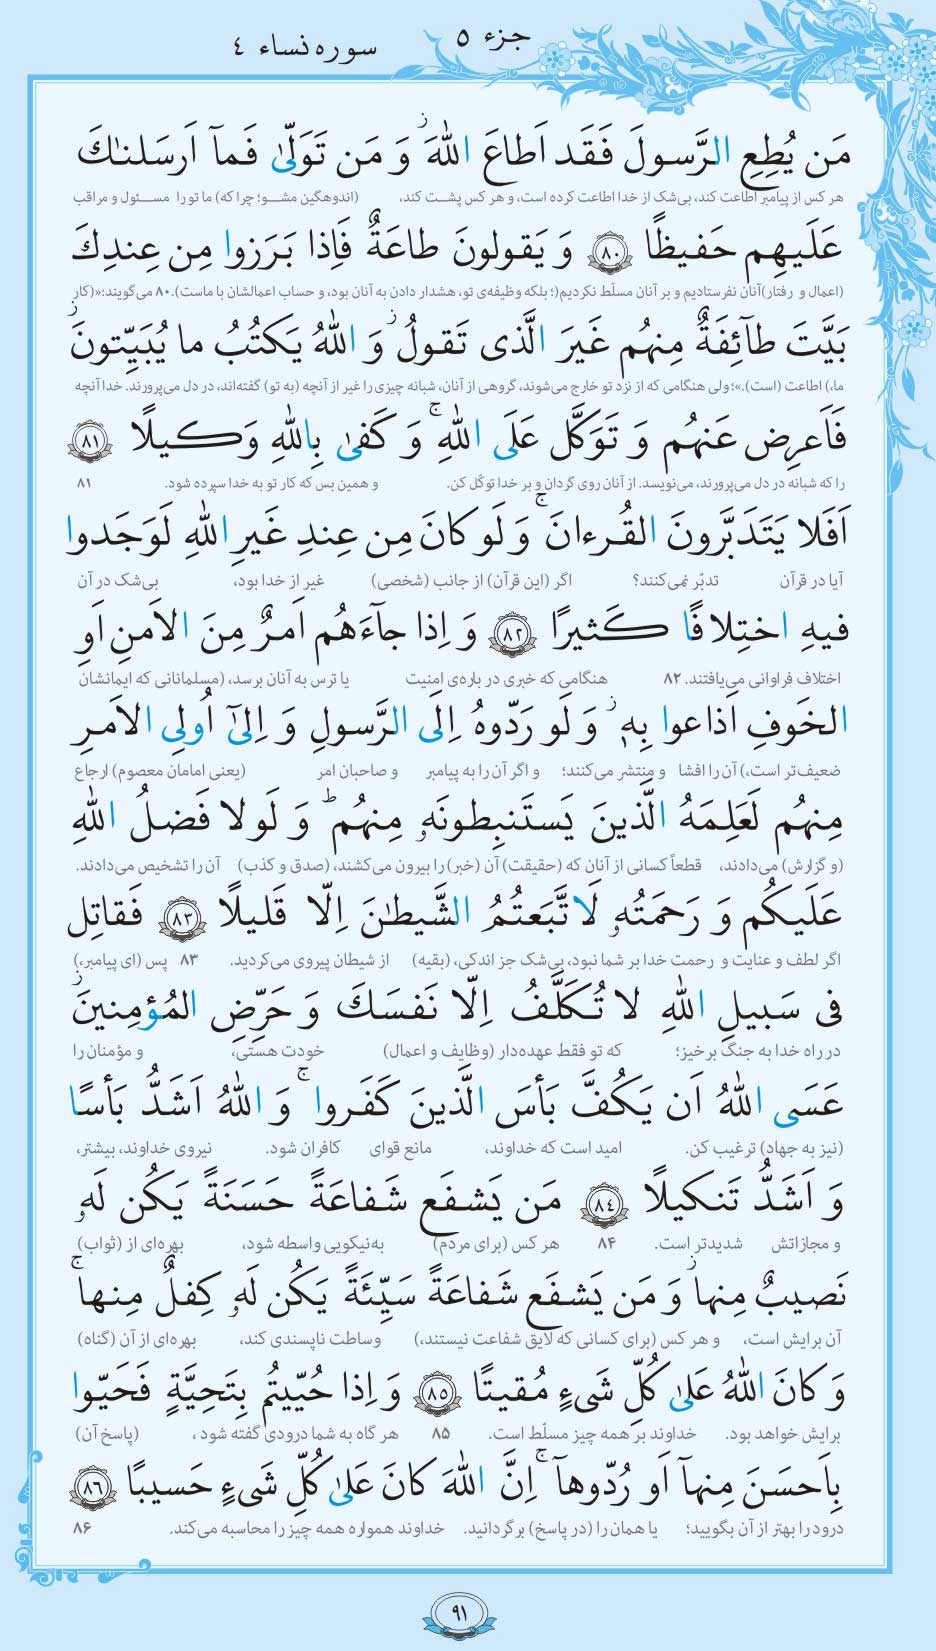 جزء ۵
سوره نساء ۴
مَن يُطِعِ الرَّسولَ فَقَد اَطاعَ اللّٰهَ ۖ وَ مَن تَوَلّىٰ فَمآ اَرسَلنٰكَ
هر کس از پیامبر اطاعت کند، بی‌شک از خدا اطاعت کرده است، و هر کس پشت کند، (اندوهگین مشو؛ چرا که) ما تو را مسئول و مراقب
عَلَيهِم حَفيظًا ﴿۸۰﴾ وَ يَقولونَ طاعَةٌ فَاِذا بَرَزوا مِن عِندِكَ
(اعمال و رفتار)آنان نفرستادیم و بر آنان مسلّط نکردیم(؛ بلکه وظیفه‌ی تو، هشدار دادن به آنان بود، و حساب اعمالشان با ماست). ۸۰ می‌گویند:«(کار
بَيَّتَ طآئِفَةٌ مِنهُم غَيرَ الَّذى تَقولُ ۖ وَ اللّٰهُ يَكتُبُ ما يُبَيِّتونَ ۖ
ما،) اطاعت (است).»؛ ولی هنگامی که از نزد تو خارج می‌شوند، گروهی از آنان، شبانه چیزی را غیر از آنچه (به تو) گفته‌اند، در دل می‌پرورند. خدا آنچه
فَاَعرِض عَنهُم وَ تَوَكَّل عَلَى اللّٰهِ ۚ وَ كَفىٰ بِاللّٰهِ وَكيلًا ﴿۸۱﴾
را که شبانه در دل می‌پرورند، می‌نویسد. از آنان روی گردان و بر خدا توکّل کن. و همین بس که کار تو به خدا سپرده شود. ۸۱
اَفَلا يَتَدَبَّرونَ القُرءانَ ۚ وَ لَو كانَ مِن عِندِ غَيرِ اللّٰهِ لَوَجَدوا
آیا در قرآن تدبّر نمی‌کنند؟ اگر (این قرآن) از جانب (شخصی) غیر از خدا بود، بی‌شک در آن
فيهِ اختِلافًا كَثيرًا ﴿۸۲﴾ وَ اِذا جآءَهُم اَمرٌ مِنَ الاَمنِ اَوِ
اختلاف فراوانی می‌یافتند. ۸۲ هنگامی که خبری در باره‌ی امنیت یا ترس به آنان برسد، (مسلمانانی که ایمانشان
الخَوفِ اَذاعوا بِهٖ ۖ وَ لَو رَدّوهُ اِلَى الرَّسولِ وَ اِلىٰٓ اُولِى الاَمرِ
ضعیف‌تر است،) آن را افشا و منتشر می‌کنند؛ و اگر آن را به پیامبر و صاحبان امر (یعنی امامان معصوم) ارجاع
مِنهُم لَعَلِمَهُ الَّذينَ يَستَنبِطونَهٗ مِنهُم ؕ وَ لَولا فَضلُ اللّٰهِ
(و گزارش) می‌دادند، قطعاً کسانی از آنان که (حقیقت) آن (خبر) را بیرون می‌کشند، (صدق و کذب) آن را تشخیص می‌دادند.
عَلَيكُم وَ رَحمَتُهٗ لَاتَّبَعتُمُ الشَّيطٰنَ اِلّا قَليلًا ﴿۸۳﴾ فَقاتِل
اگر لطف و عنایت و رحمت خدا بر شما نبود، بی‌شک جز اندکی، (بقیه) از شیطان پیروی می‌کردید. ۸۳ پس (ای پیامبر،)
فى سَبيلِ اللّٰهِ لا تُكَلَّفُ اِلّا نَفسَكَ وَ حَرِّضِ المُؤمِنينَ ۖ
در راه خدا به جنگ برخیز؛ که تو فقط عهده‌دار (وظایف و اعمال) خودت هستی، و مؤمنان را
عَسَى اللّٰهُ اَن يَكُفَّ بَأسَ الَّذينَ كَفَروا ۚ وَ اللّٰهُ اَشَدُّ بَأسًا
(نیز به جهاد) ترغیب کن. امید است که خداوند، مانع قوای کافران شود. نیروی خداوند، بیشتر،
وَ اَشَدُّ تَنكيلًا ﴿۸۴﴾ مَن يَشفَع شَفاعَةً حَسَنَةً يَكُن لَهٗ
و مجازاتش شدیدتر است. ۸۴ هر کس (برای مردم) به‌نیکویی واسطه شود، بهره‌ای از (ثواب)
نَصيبٌ مِنها ۖ وَ مَن يَشفَع شَفاعَةً سَيِّئَةً يَكُن لَهٗ كِفلٌ مِنها ۚ
آن برایش است، و هر کس (برای کسانی که لایق شفاعت نیستند،) وساطت ناپسندی کند، بهره‌ای از آن (گناه)
وَ كانَ اللّٰهُ عَلىٰ كُلِّ شَىءٍ مُقيتًا ﴿۸۵﴾ وَ اِذا حُيّيتُم بِتَحِيَّةٍ فَحَيّوا
برایش خواهد بود. خداوند بر همه چیز مسلّط است. ۸۵ هر گاه به شما درودی گفته شود ، (پاسخ آن)
بِاَحسَنَ مِنهآ اَو رُدّوهآ ۚ اِنَّ اللّٰهَ كانَ عَلىٰ كُلِّ شَىءٍ حَسيبًا ﴿۸۶﴾
درود را بهتر از آن بگویید؛ یا همان را (در پاسخ) برگردانید. خداوند همواره همه چیز را محاسبه می‌کند. ۸۶
۹۱